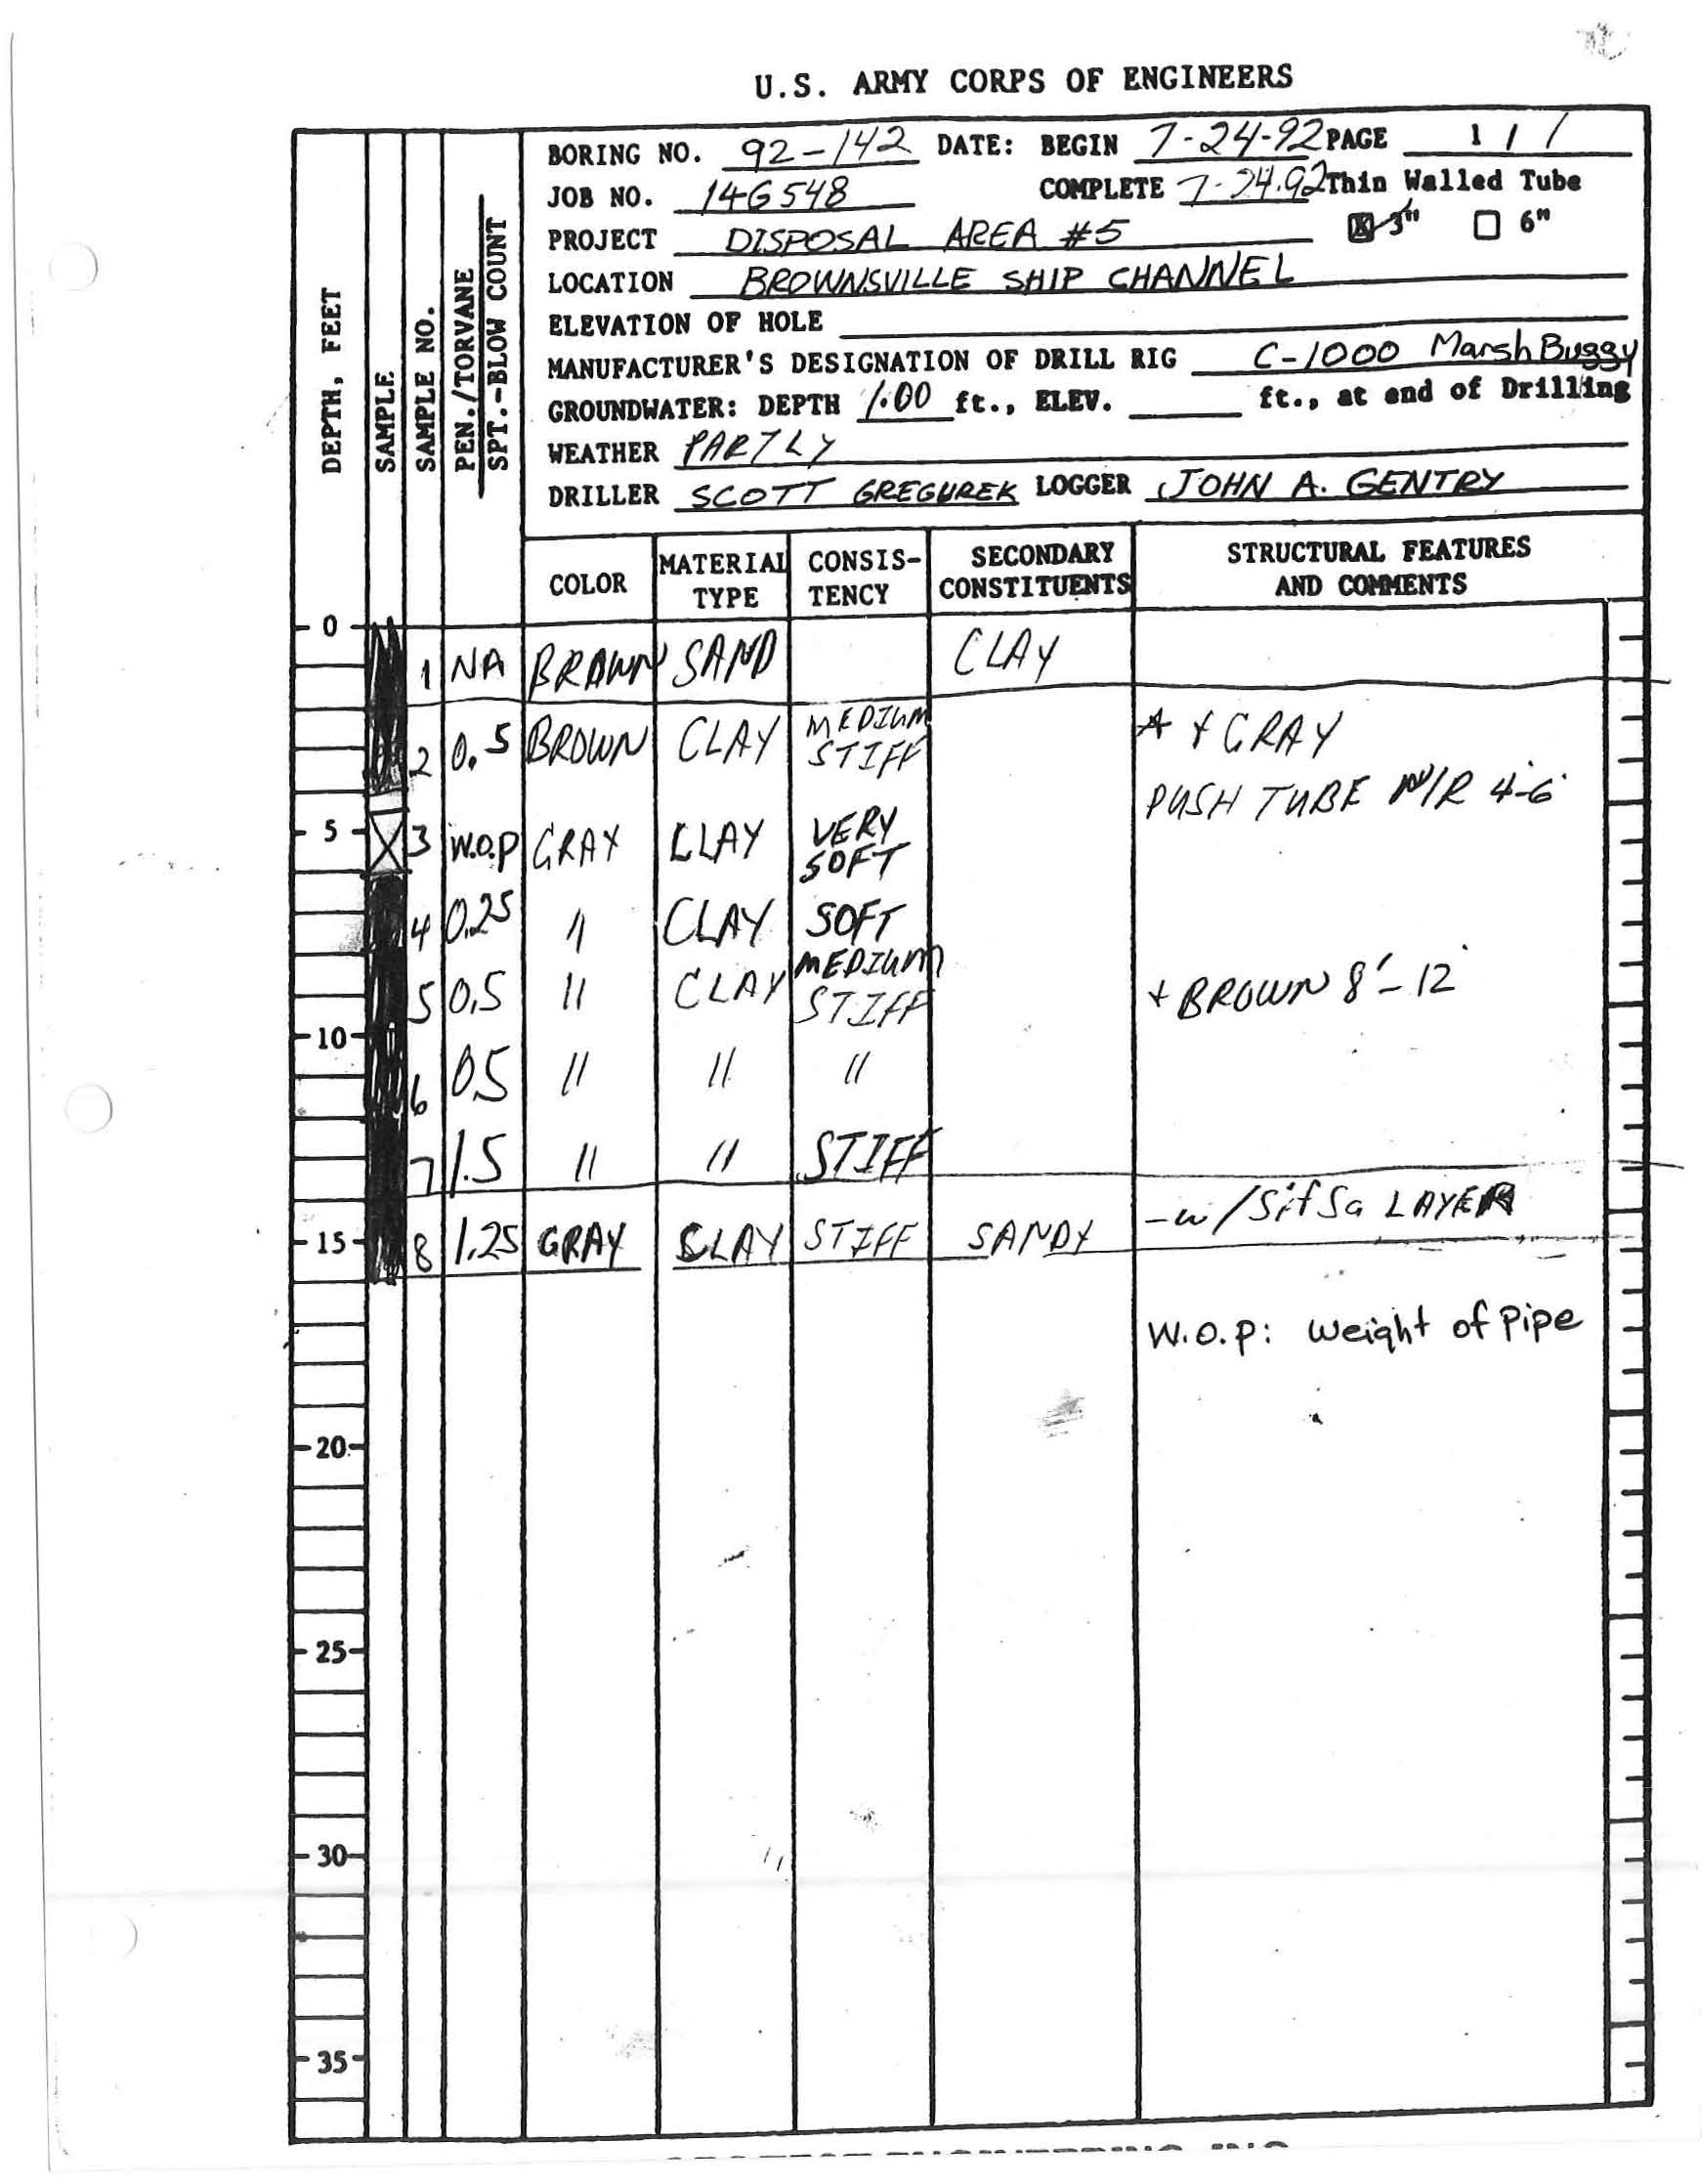 U.S. ARMY CORPS OF ENGINEERS
BORING NO. 92-142 DATE: BEGIN 7-24-92 PAGE 1 / 1
JOB NO. 14G548 COMPLETE 7-24-92 Thin Walled Tube
PROJECT DISPOSAL AREA #5 ☒ 3" ☐ 6"
LOCATION BROWNSVILLE SHIP CHANNEL
ELEVATION OF HOLE
MANUFACTURER'S DESIGNATION OF DRILL RIG C-1000 Marsh Buggy
GROUNDWATER: DEPTH 1.00 ft., ELEV. ft., at end of Drilling
WEATHER PARTLY
DRILLER SCOTT GREGUREK LOGGER JOHN A. GENTRY
DEPTH, FEET
SAMPLE
SAMPLE NO.
PEN./TORVANE
SPT.-BLOW COUNT
COLOR MATERIAL TYPE CONSIS-TENCY SECONDARY CONSTITUENTS STRUCTURAL FEATURES AND COMMENTS
0
1 NA BROWN SAND CLAY
2 0.5 BROWN CLAY MEDIUM STIFF + GRAY
PUSH TUBE N/R 4-6'
5 3 W.O.P GRAY CLAY VERY SOFT
4 0.25 " CLAY SOFT
5 0.5 " CLAY MEDIUM STIFF + BROWN 8'-12'
10
6 0.5 " " "
7 1.5 " " STIFF
-w/ LAYER
15 8 1.25 GRAY CLAY STIFF SANDY
W.O.P: Weight of Pipe
20
25
30
35